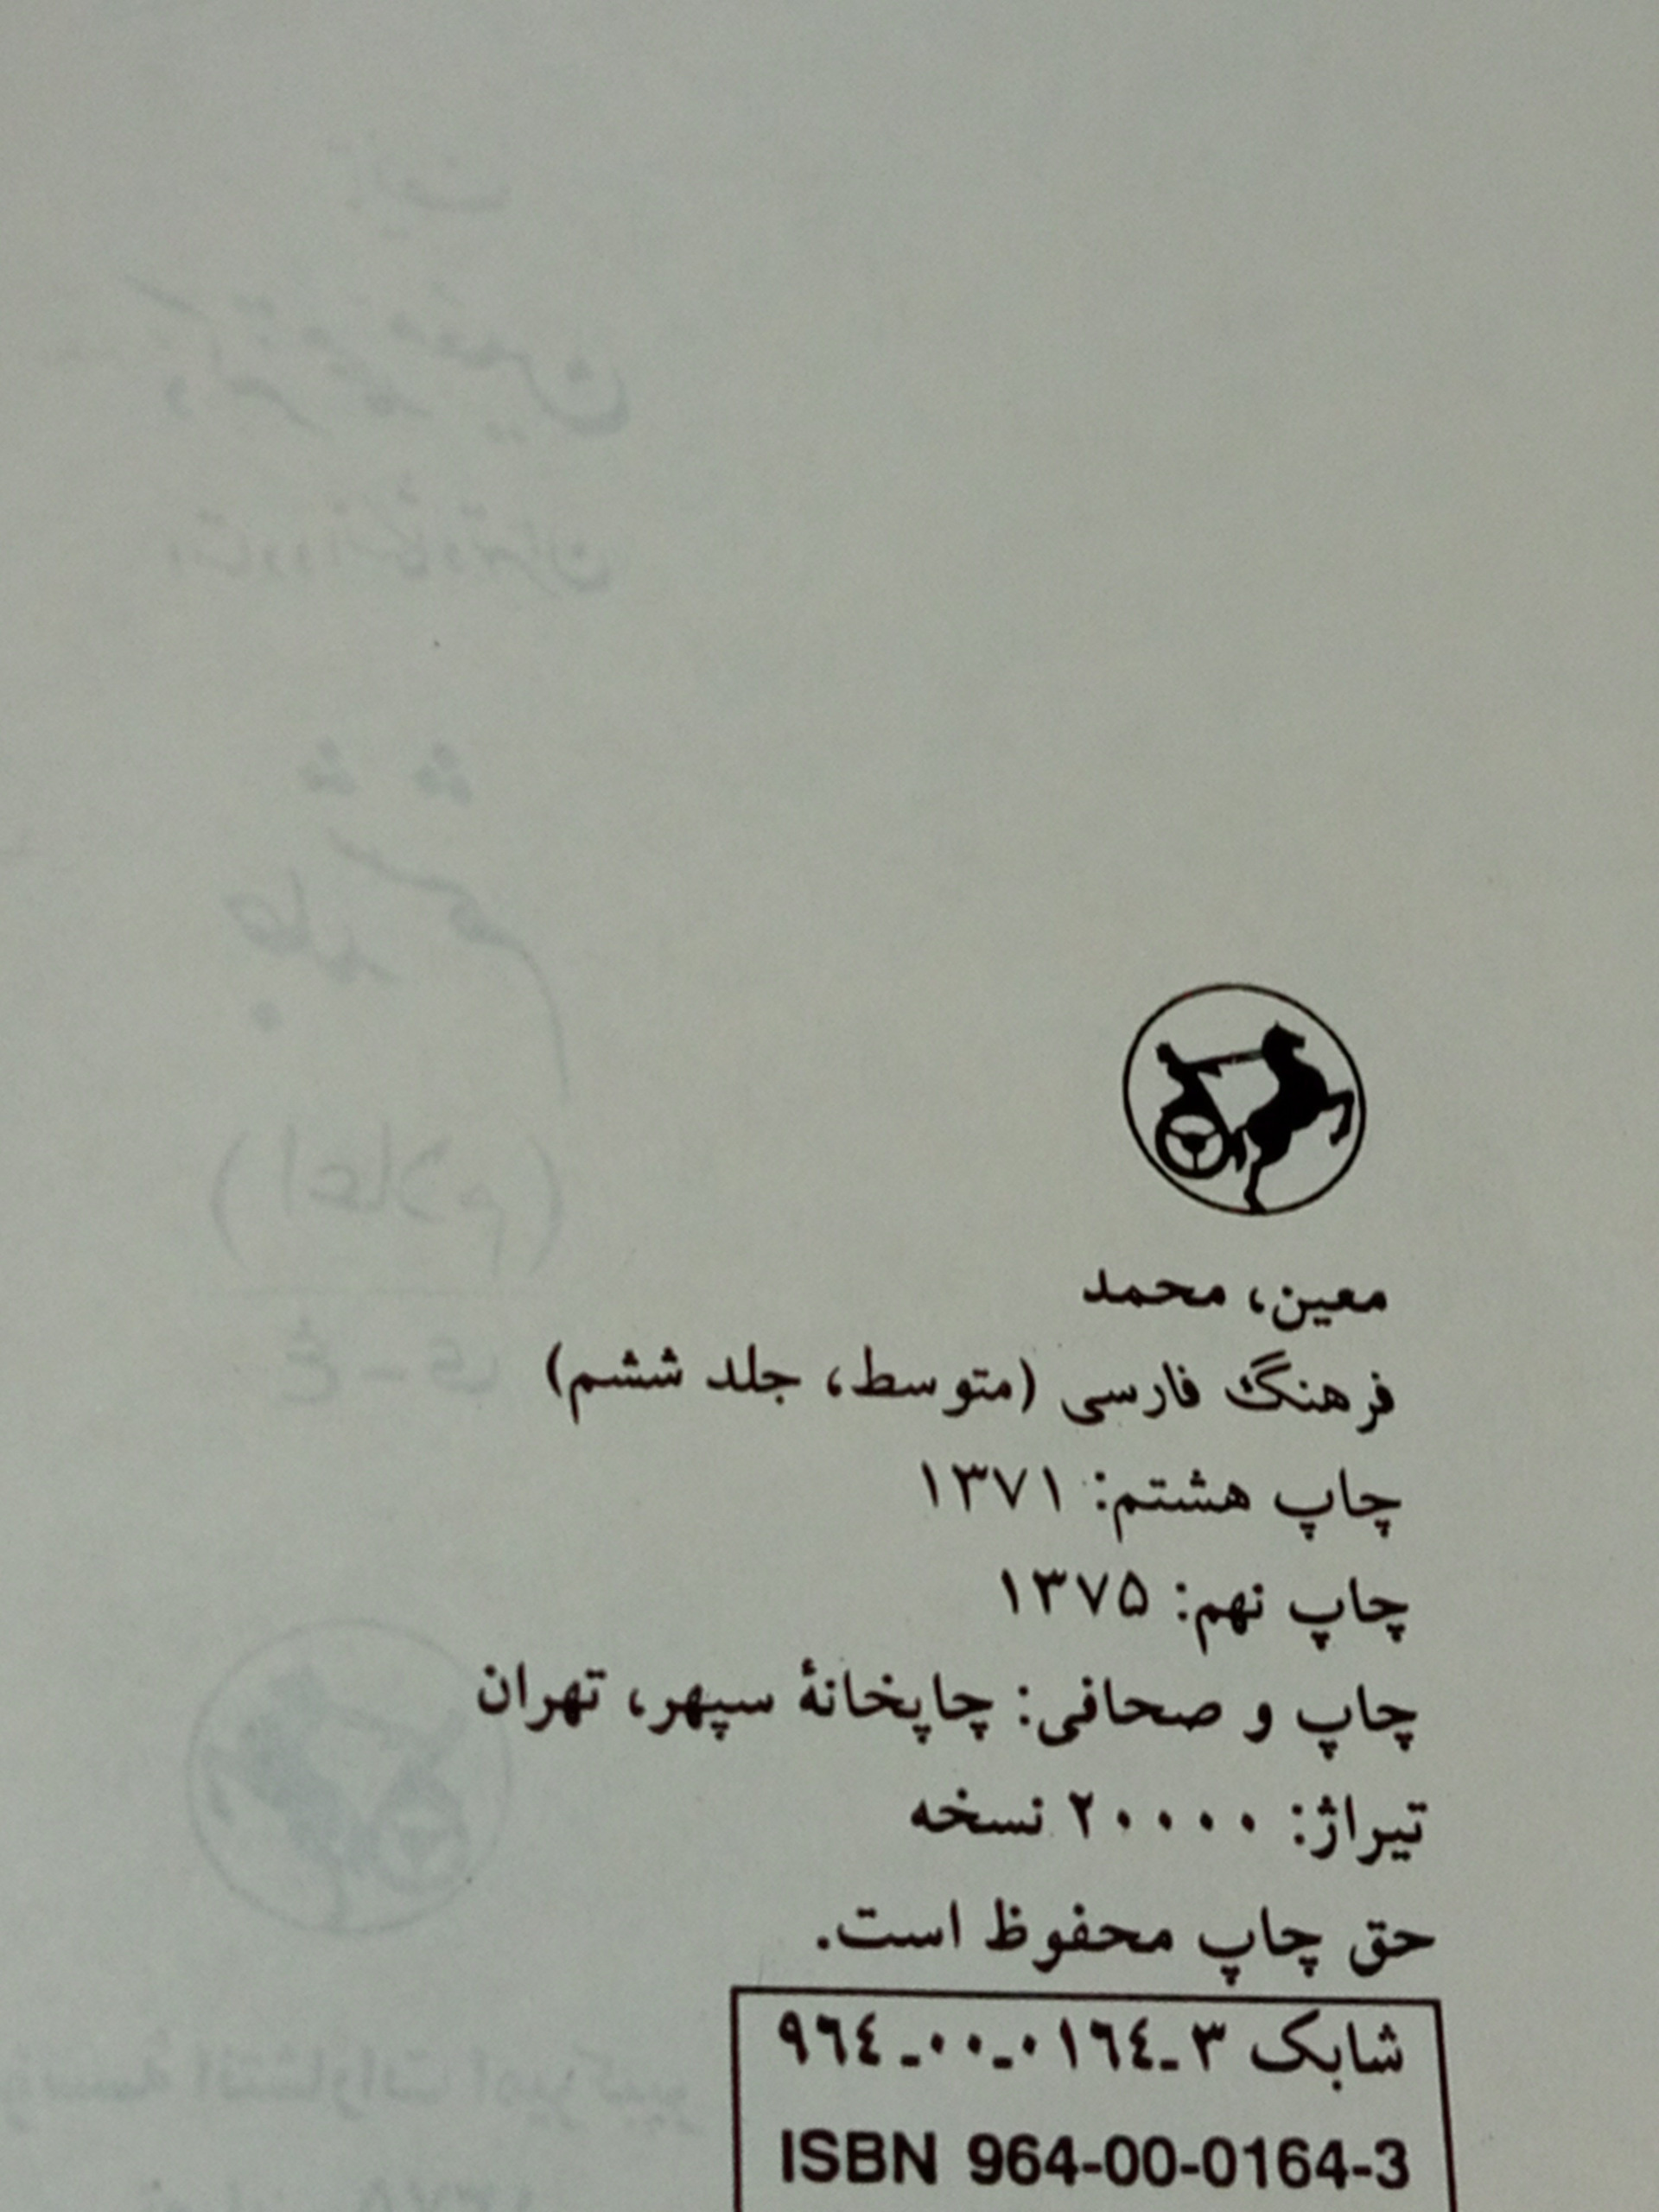 معین، محمد
فرهنگ فارسی (متوسط، جلد ششم)
چاپ هشتم: ۱۳۷۱
چاپ نهم: ۱۳۷۵
چاپ و صحافی: چاپخانهٔ سپهر، تهران
تیراژ: ۲۰۰۰۰ نسخه
حق چاپ محفوظ است.
شابک ۳-۰۱۶۴-۰۰-۹۶۴
ISBN 964-00-0164-3